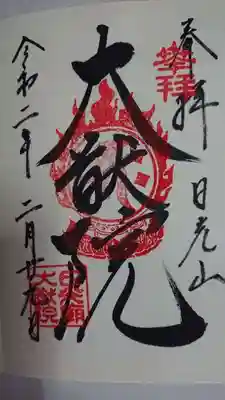 奉拝 日光山
大猷院
令和二年 二月廿九日
日光山
大猷院